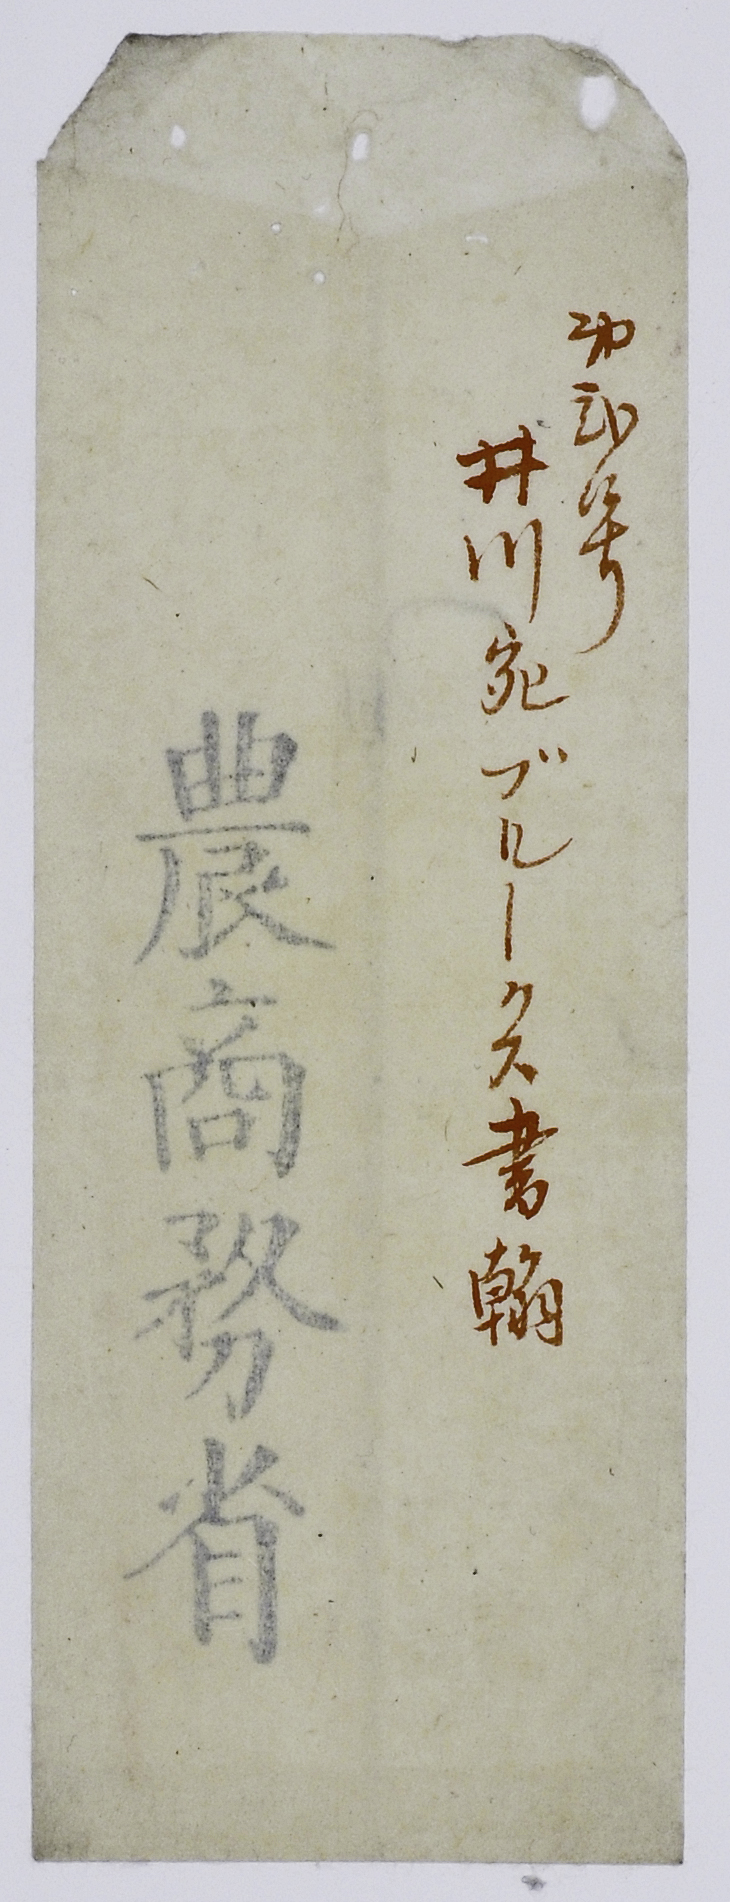 功弐号
井川宛ブルークス書翰
農商務省